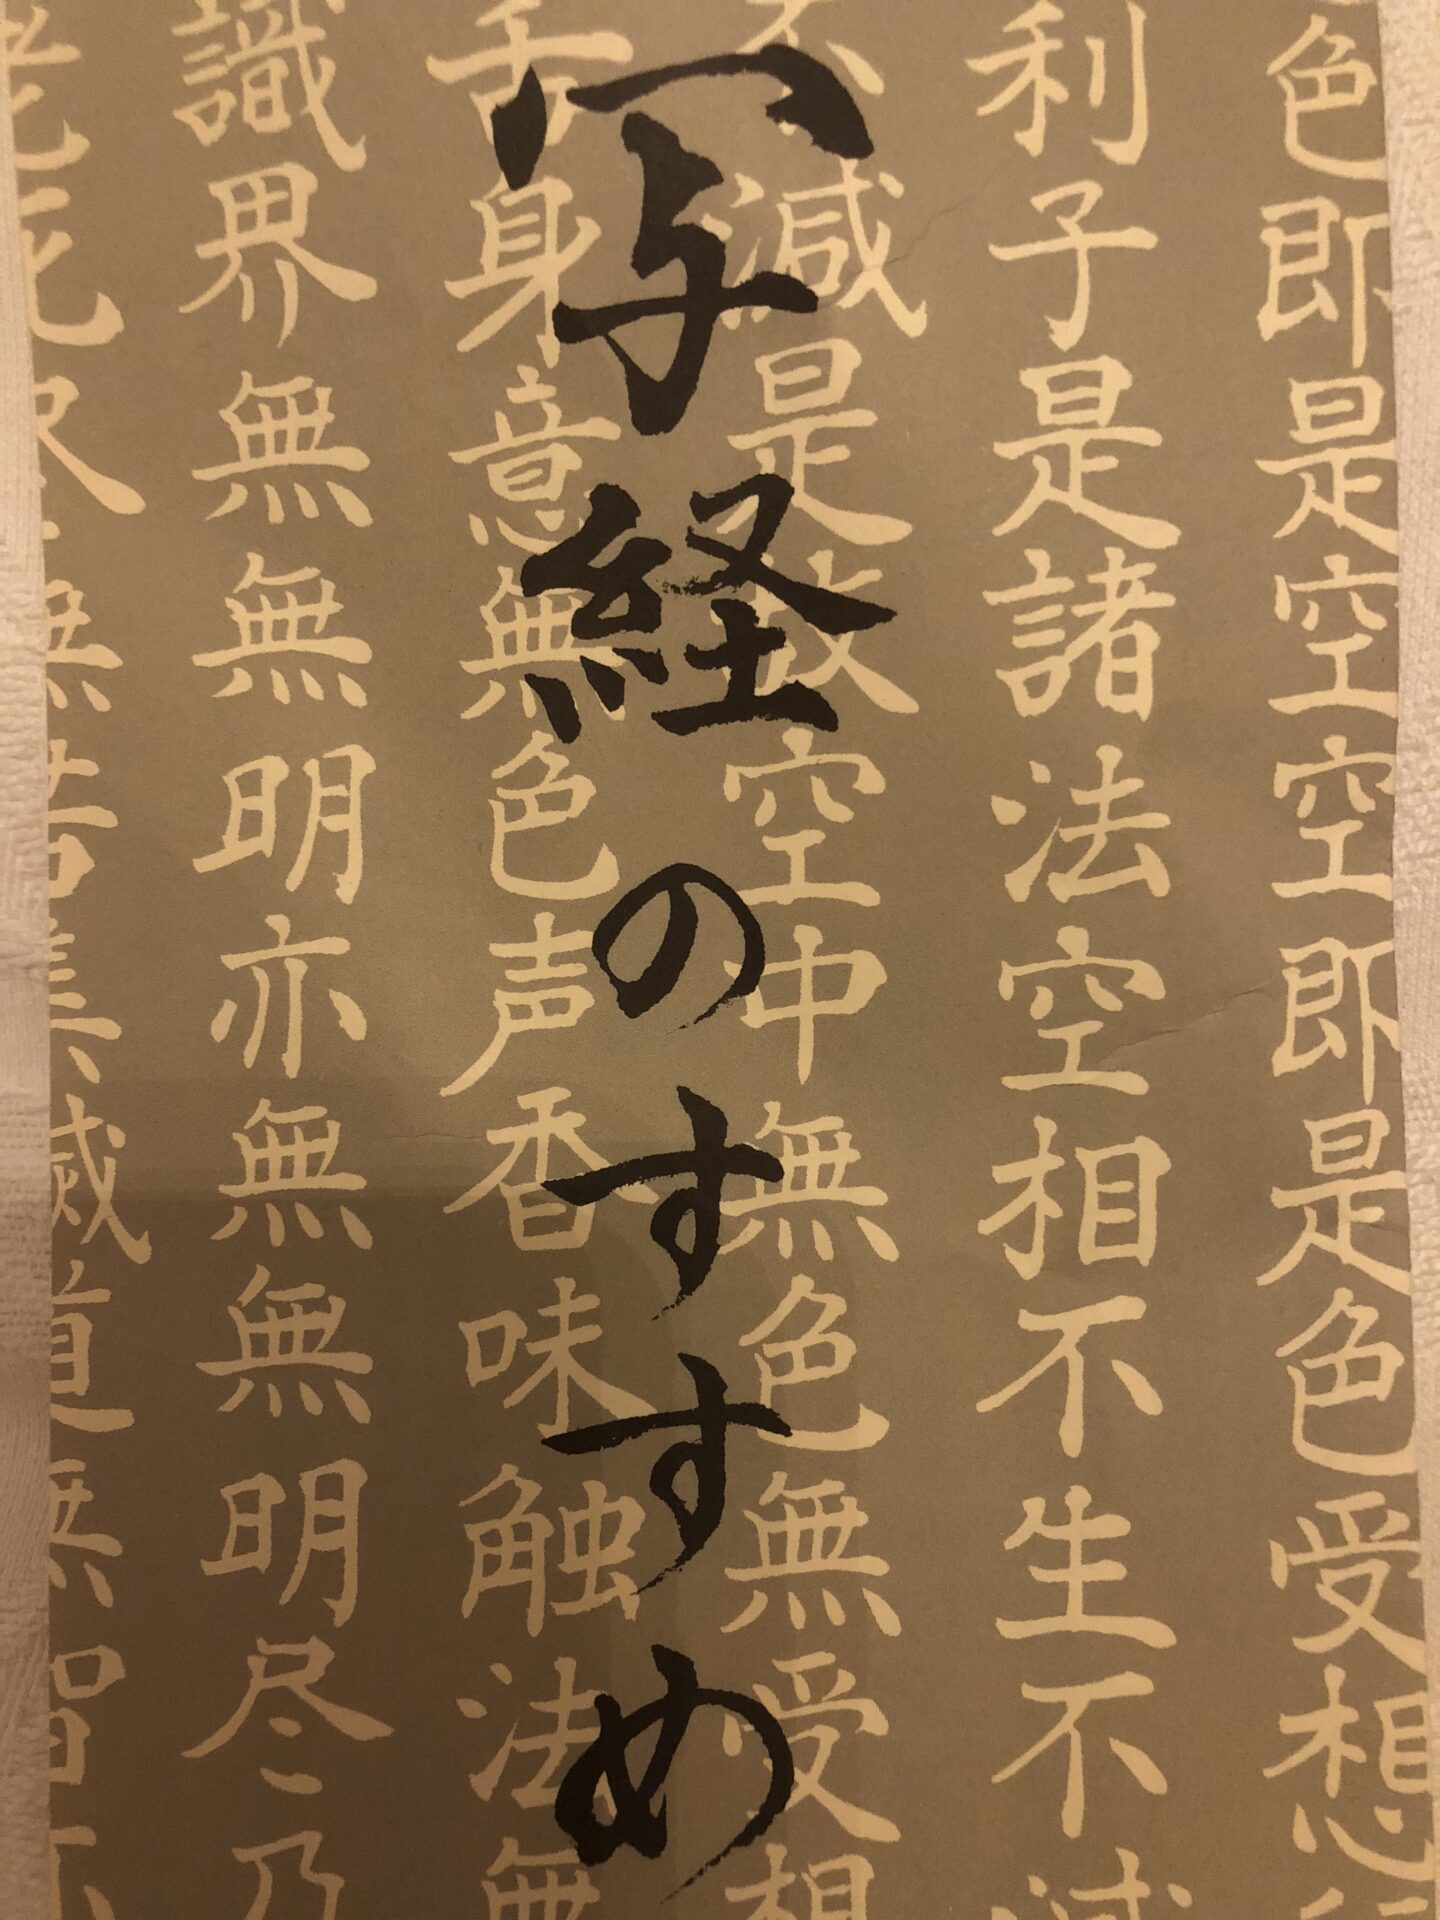 写経のすすめ
色即是空空即是色受想行
利子是諸法空相不生不滅
不減是故空中無色無受想
舌身意無色声香味触法無
識界無無明亦無無明尽乃
老死尽無苦集滅道無智亦